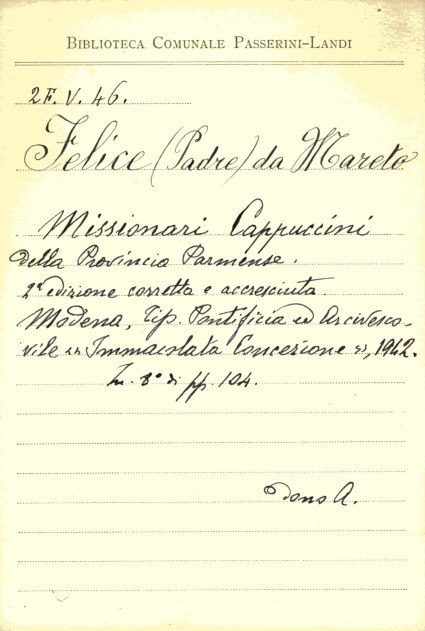 BIBLIOTECA COMUNALE PASSERINI-LANDI
2F. V. 46.
Felice (Padre) da Mareto
Missionari Cappuccini
della Provincia Parmense.
2ª edizione corretta e accresciuta.
Modena, Tip. Pontificia ed Arcivesco-
vile «Immacolata Concezione», 1942.
In. 8° di pp. 104.
dono A.